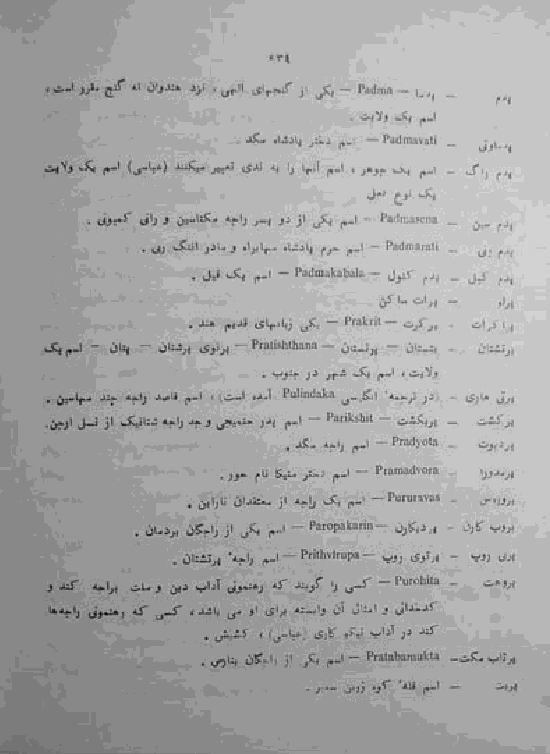 پدم — پدما — Padma — یکی از گنجهای الهی، نزد هندوان نه گنج مقرر است،
اسم یک ولایت.
پدماوتی — Padmavati — اسم دختر پادشاه مگد.
پدم راگ — اسم یک جوهر، اسم آنها را به ندی تعبیر میکنند (عباسی) اسم یک ولایت
یک نوع لعل
پدم سین — Padmasena — اسم یکی از دو پسر راجه مکتاسین و رانی
پدم رتی — Padmarati — اسم حرم پادشاه و مادر انگ
پدم کبل — پدم کنول — Padmakabala — اسم یک فیل.
پراو — پرات ساکن
پراکرات — پرکرت — Prakrit — یکی زبانهای قدیم هند.
پرتشتان — پتستان — پرتستان — Pratishthana — پرتوی پرشتان — پتان — اسم یک
ولایت، اسم یک شهر در جنوب.
پرتی هاری — (در ترجمه انگلیسی Pulindaka آمده است)، اسم قاصد راجه چند مهاسین.
پرکشت — پریکشت — Parikshit — اسم پدر جنمیجی و جد راجه شتانیک از نسل ارجن.
پردیوت — Pradyota — اسم راجه مگد.
پرمدورا — Pramadvora — اسم دختر منیکا نام حور.
پروروس — Pururavas — اسم یک راجه از معتقدان ناراین.
پروپ کارن — پردیکارن — Paropakarin — اسم یکی از راجگان بردمان.
پرتی روپ — پرتوی روپ — Prithvirupa — اسم راجه پرتشتان.
پروهت — Purohita — کسی را گویند که رهنمونی آداب دین و براجه کند و
کدخدائی و امثال آن وابسته برای او می باشد، کسی که رهنمونی راجه‌ها
کند در آداب نیکو کاری (عباسی)، کشیش.
پرتاب مکت — Pratabamukta — اسم یکی از راجگان بنارس.
پربت — اسم قله کوه